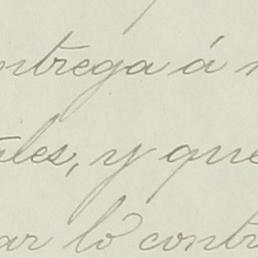 ntrega á
ales, y que
ar lo contr